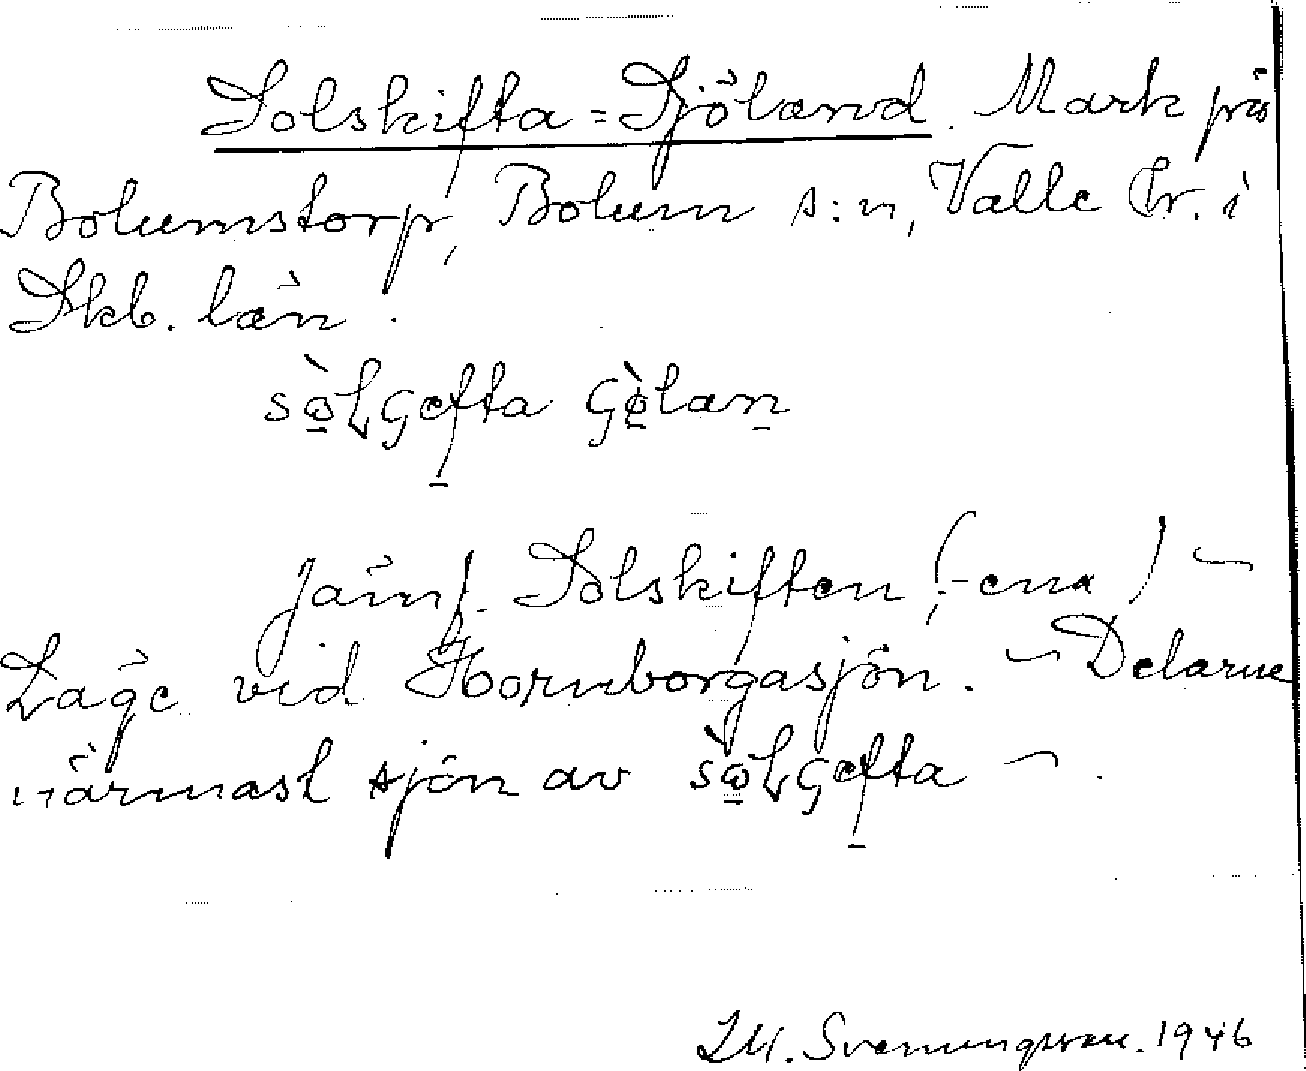 Solskifta = Sjöland. Mark på
Bolumstorp, Bolum s:n, Valle hr. i
Skb. län.
sò̲lɢefta ɢø̀lan̲
jämf. Solskiften (-ena) –
Läge vid Hornborgasjön. – Delarne
närmast sjön av sò̲lɢefta – .
Svenungsson. 1946